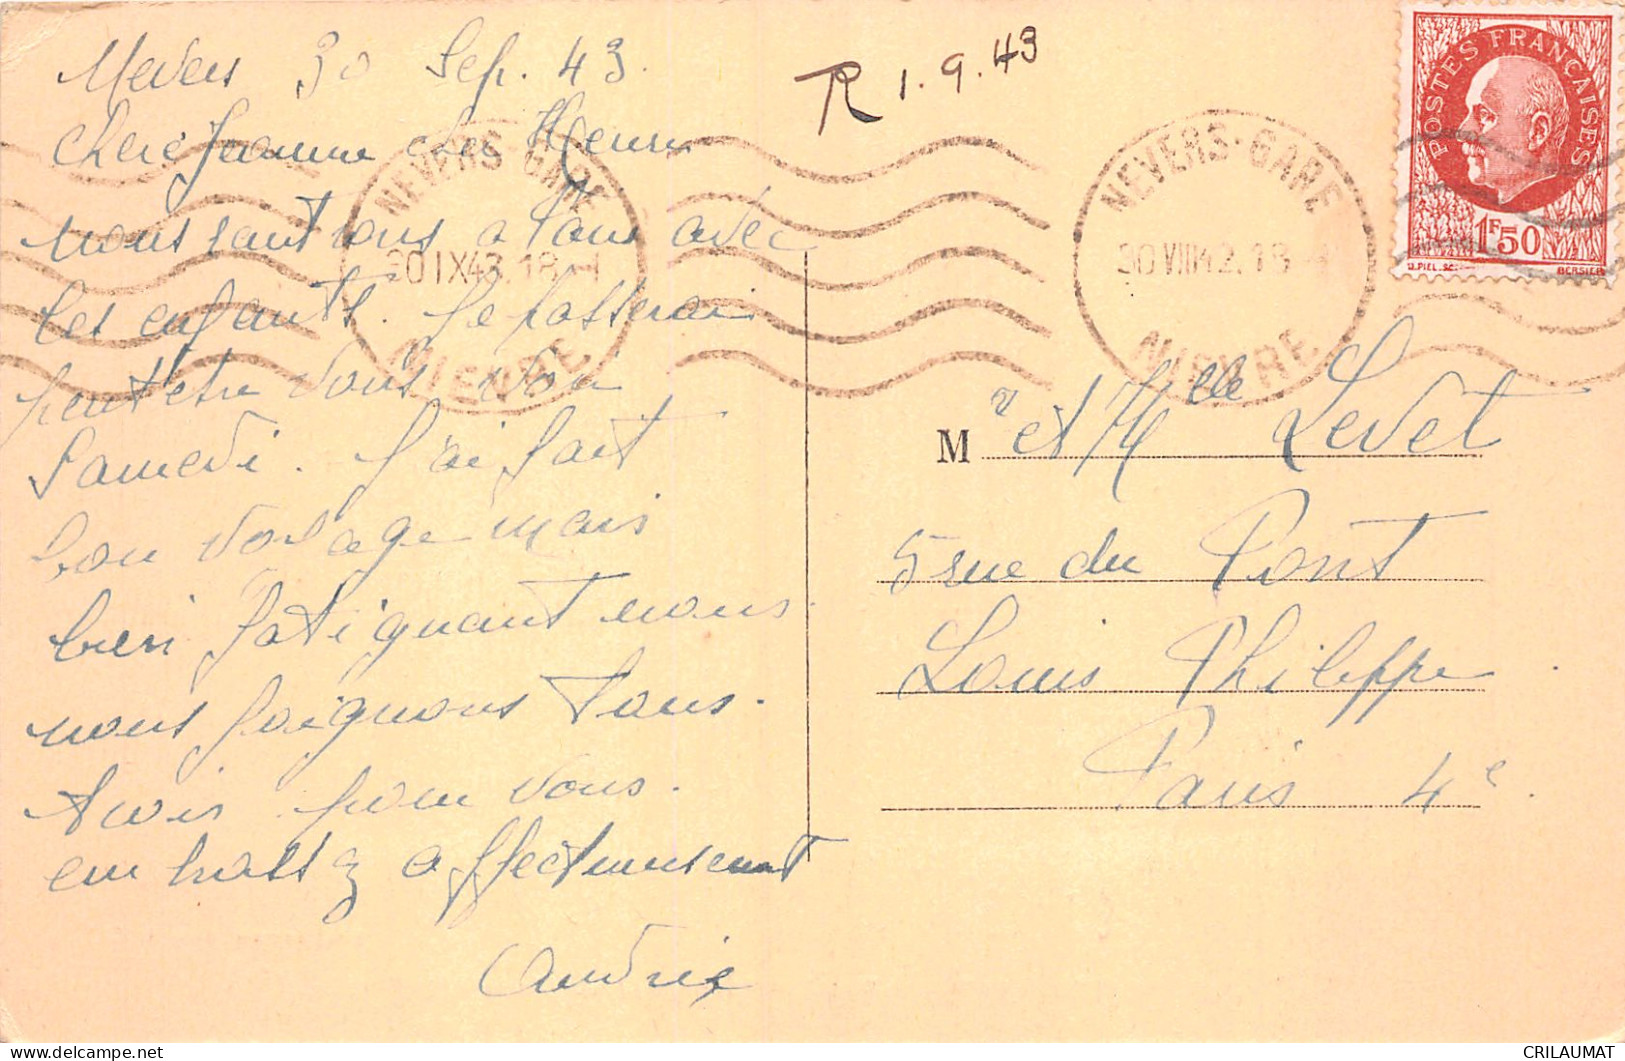 Nevers 30 Sep. 43.
Chère Jeanne cher Henri
nous sont tous a avec
les enfants. Je passerai
peut etre vous voir
Samedi. J'ai fait
bon voyage mais
bien fatiguant nous
nous soignons tous.
pour vous.
embrassez affectueusement
Andrée
R 1.9.43
NEVERS GARE
30 IX 43. 18
NIEVRE
NEVERS-GARE
30 VIII 42. 18
NIEVRE
POSTES FRANÇAISES
1F50
BERSIER
M r et Mlle Levet
5 rue du Pont
Louis Philippe
Paris 4e.
CRILAUMAT